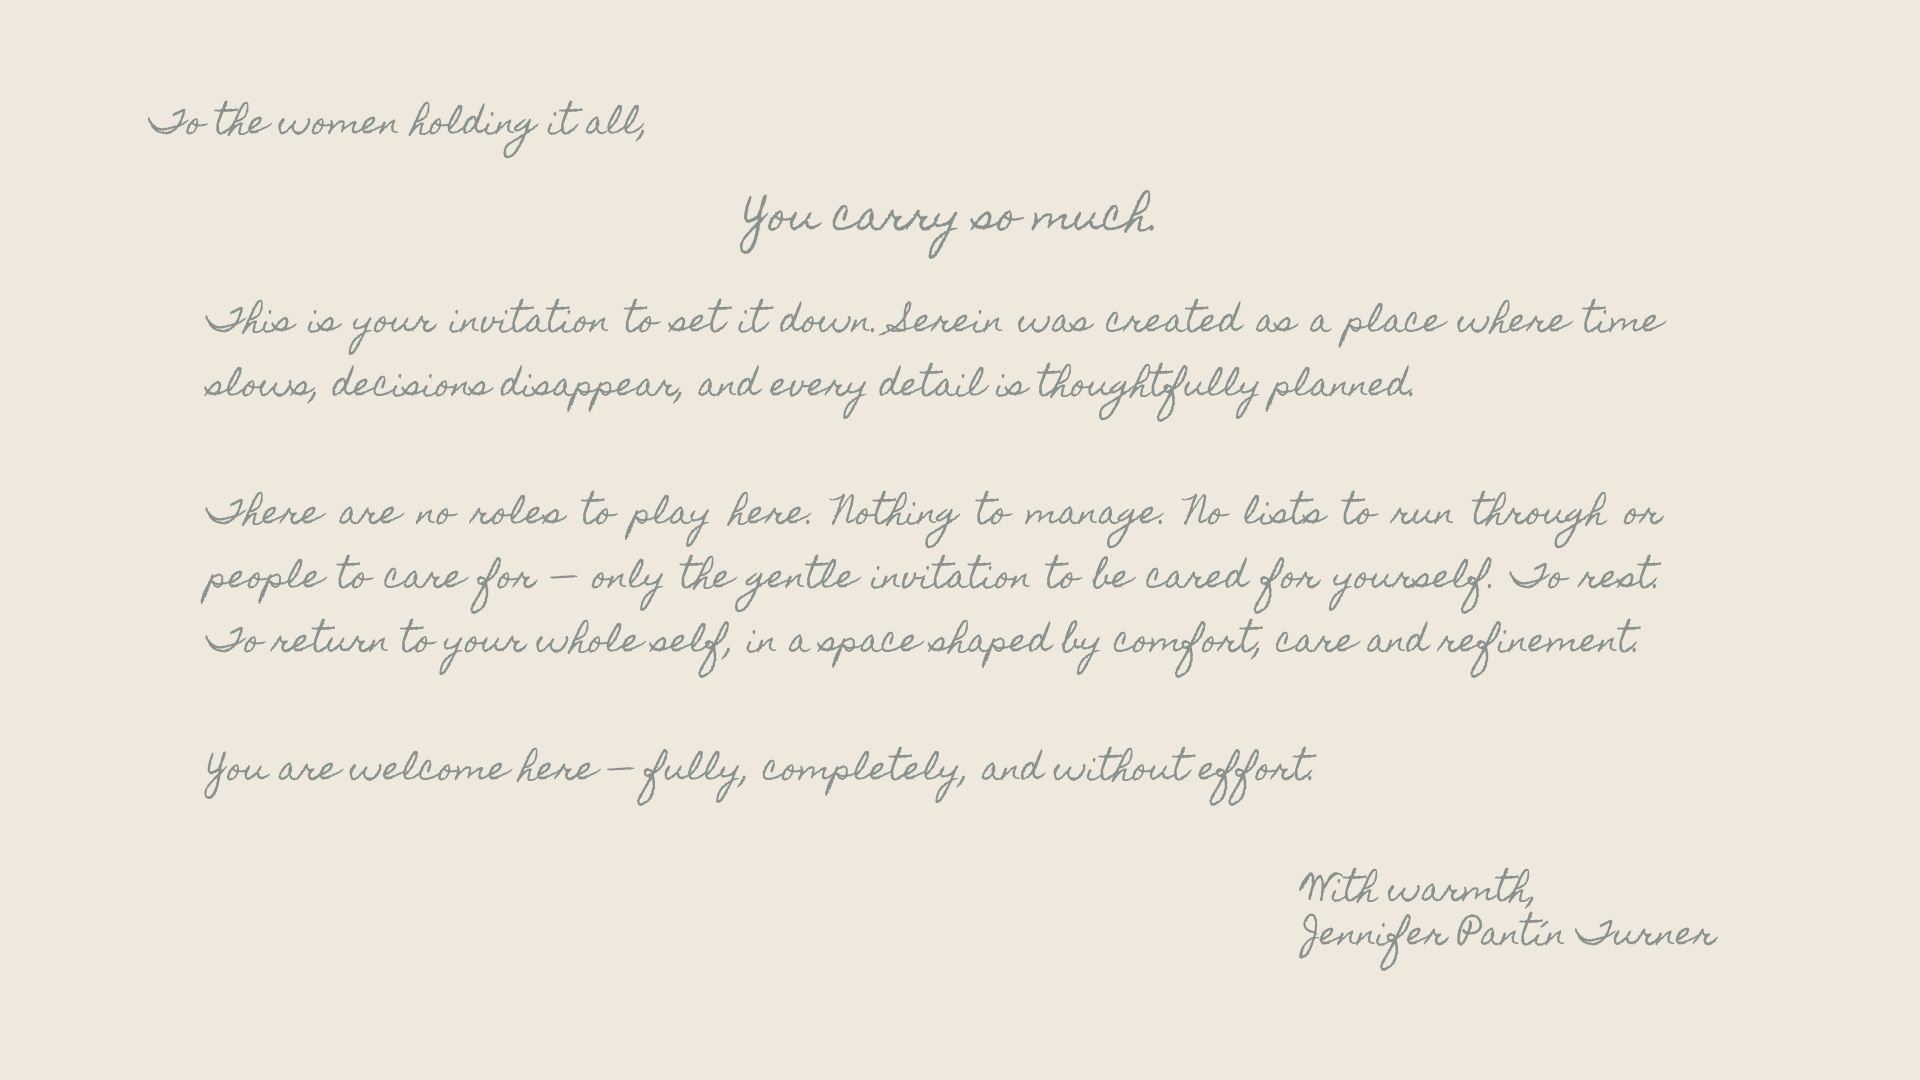 To the women holding it all,
You carry so much.
This is your invitation to set it down. Serein was created as a place where time
slows, decisions disappear, and every detail is thoughtfully planned.
There are no roles to play here. Nothing to manage. No lists to run through or
people to care for — only the gentle invitation to be cared for yourself. To rest.
To return to your whole self, in a space shaped by comfort, care and refinement.
You are welcome here — fully, completely, and without effort.
With warmth,
Jennifer Pantín Turner